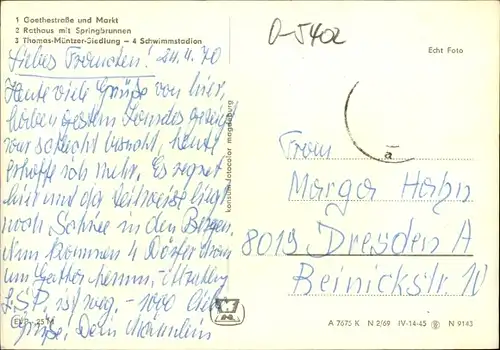 1 Goethestraße und Markt
2 Rathaus mit Springbrunnen
3 Thomas-Müntzer-Siedlung – 4 Schwimmstadion
O-5402
Echt Foto
Liebes Frauchen! 24.4.70
Heute viele Grüße von hier,
haben gestern
war schlecht besucht, heute
erhoffe ich mehr. Es regnet
hier und da teilweise liegt
noch Schnee in den Bergen.
Nun kommen 4 Dörfer dran
um
ist weg. – 1000
Grüße, Dein Männlein
konsum-fotocolor magdeburg
a
Frau
Marga Hahn
8019 Dresden A
Reinickstr. 10
A 7675 K N 2/69 IV-14-45 N 9143